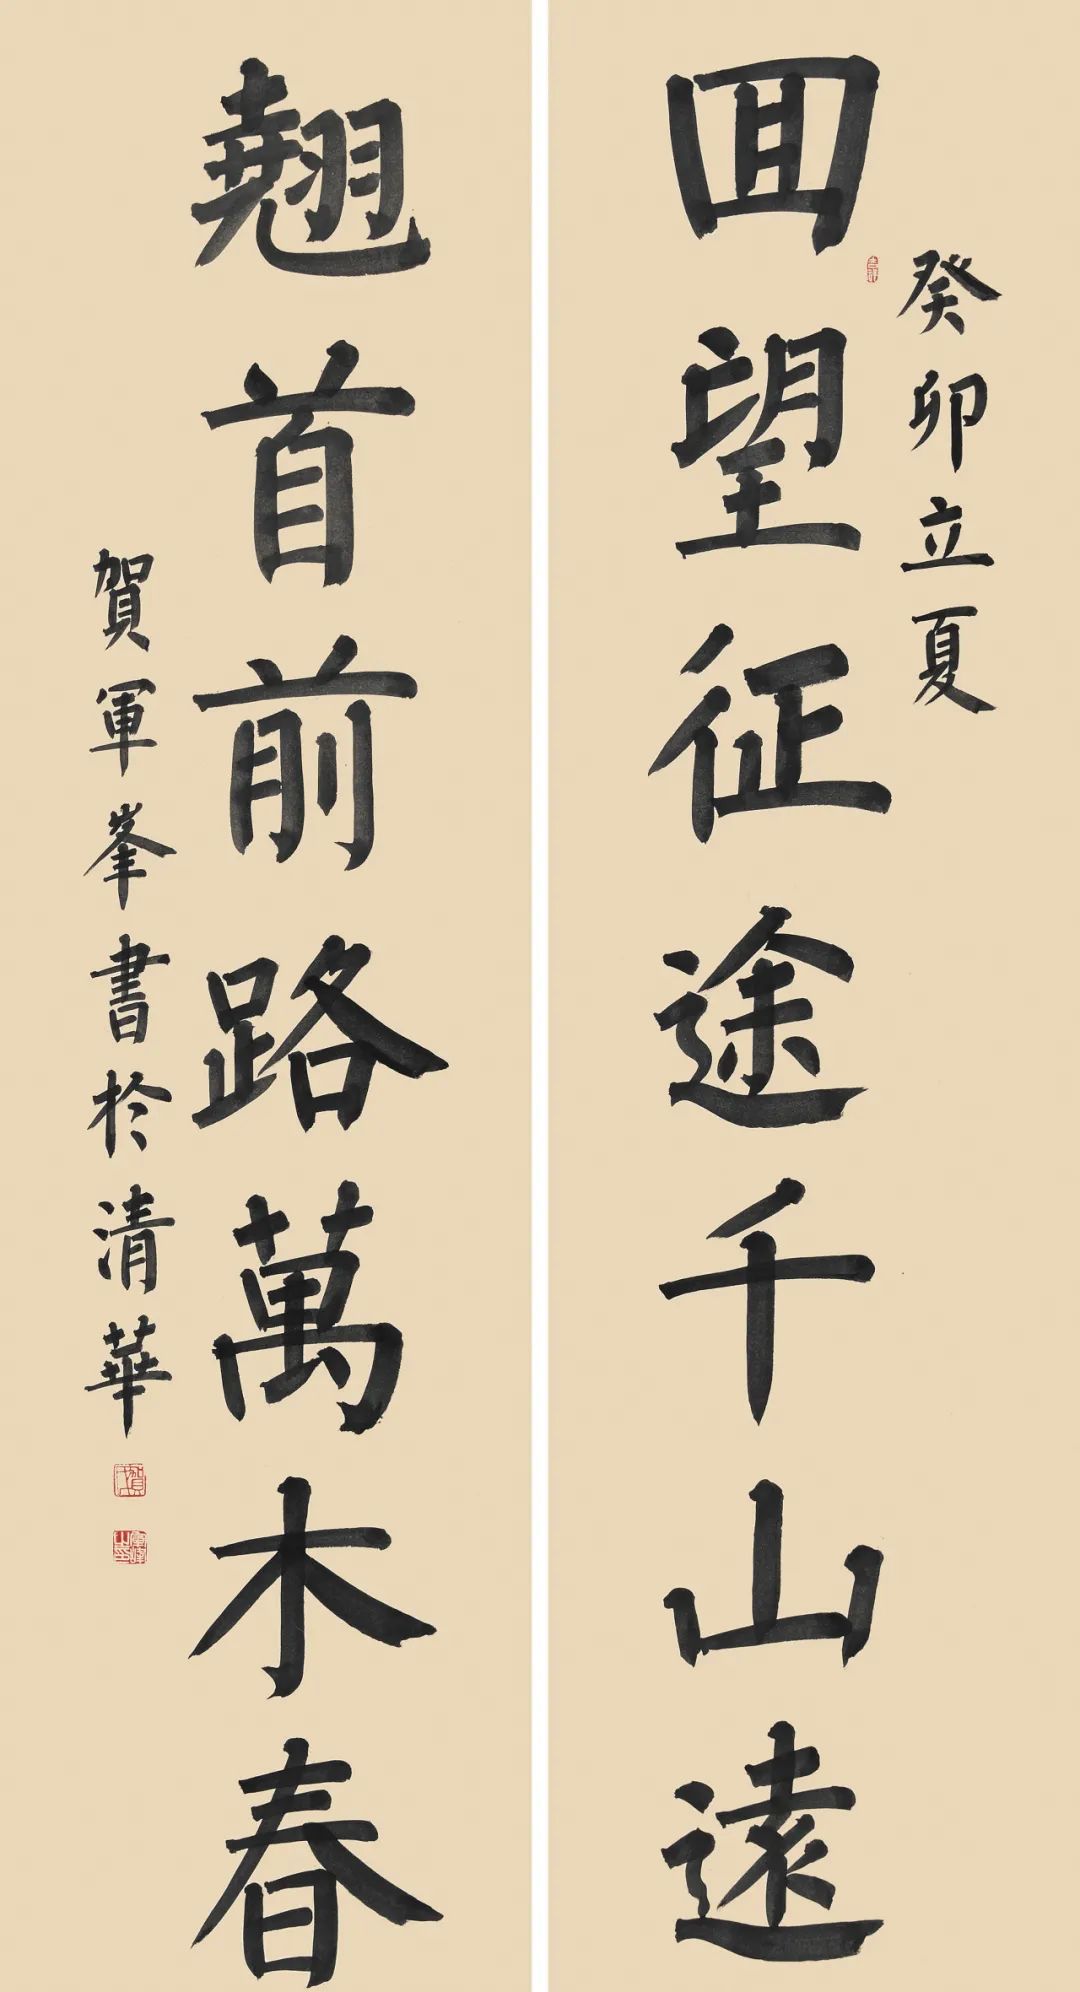 癸卯立夏
囬望征途千山遠
翹首前路萬木春
賀軍峯書於清華